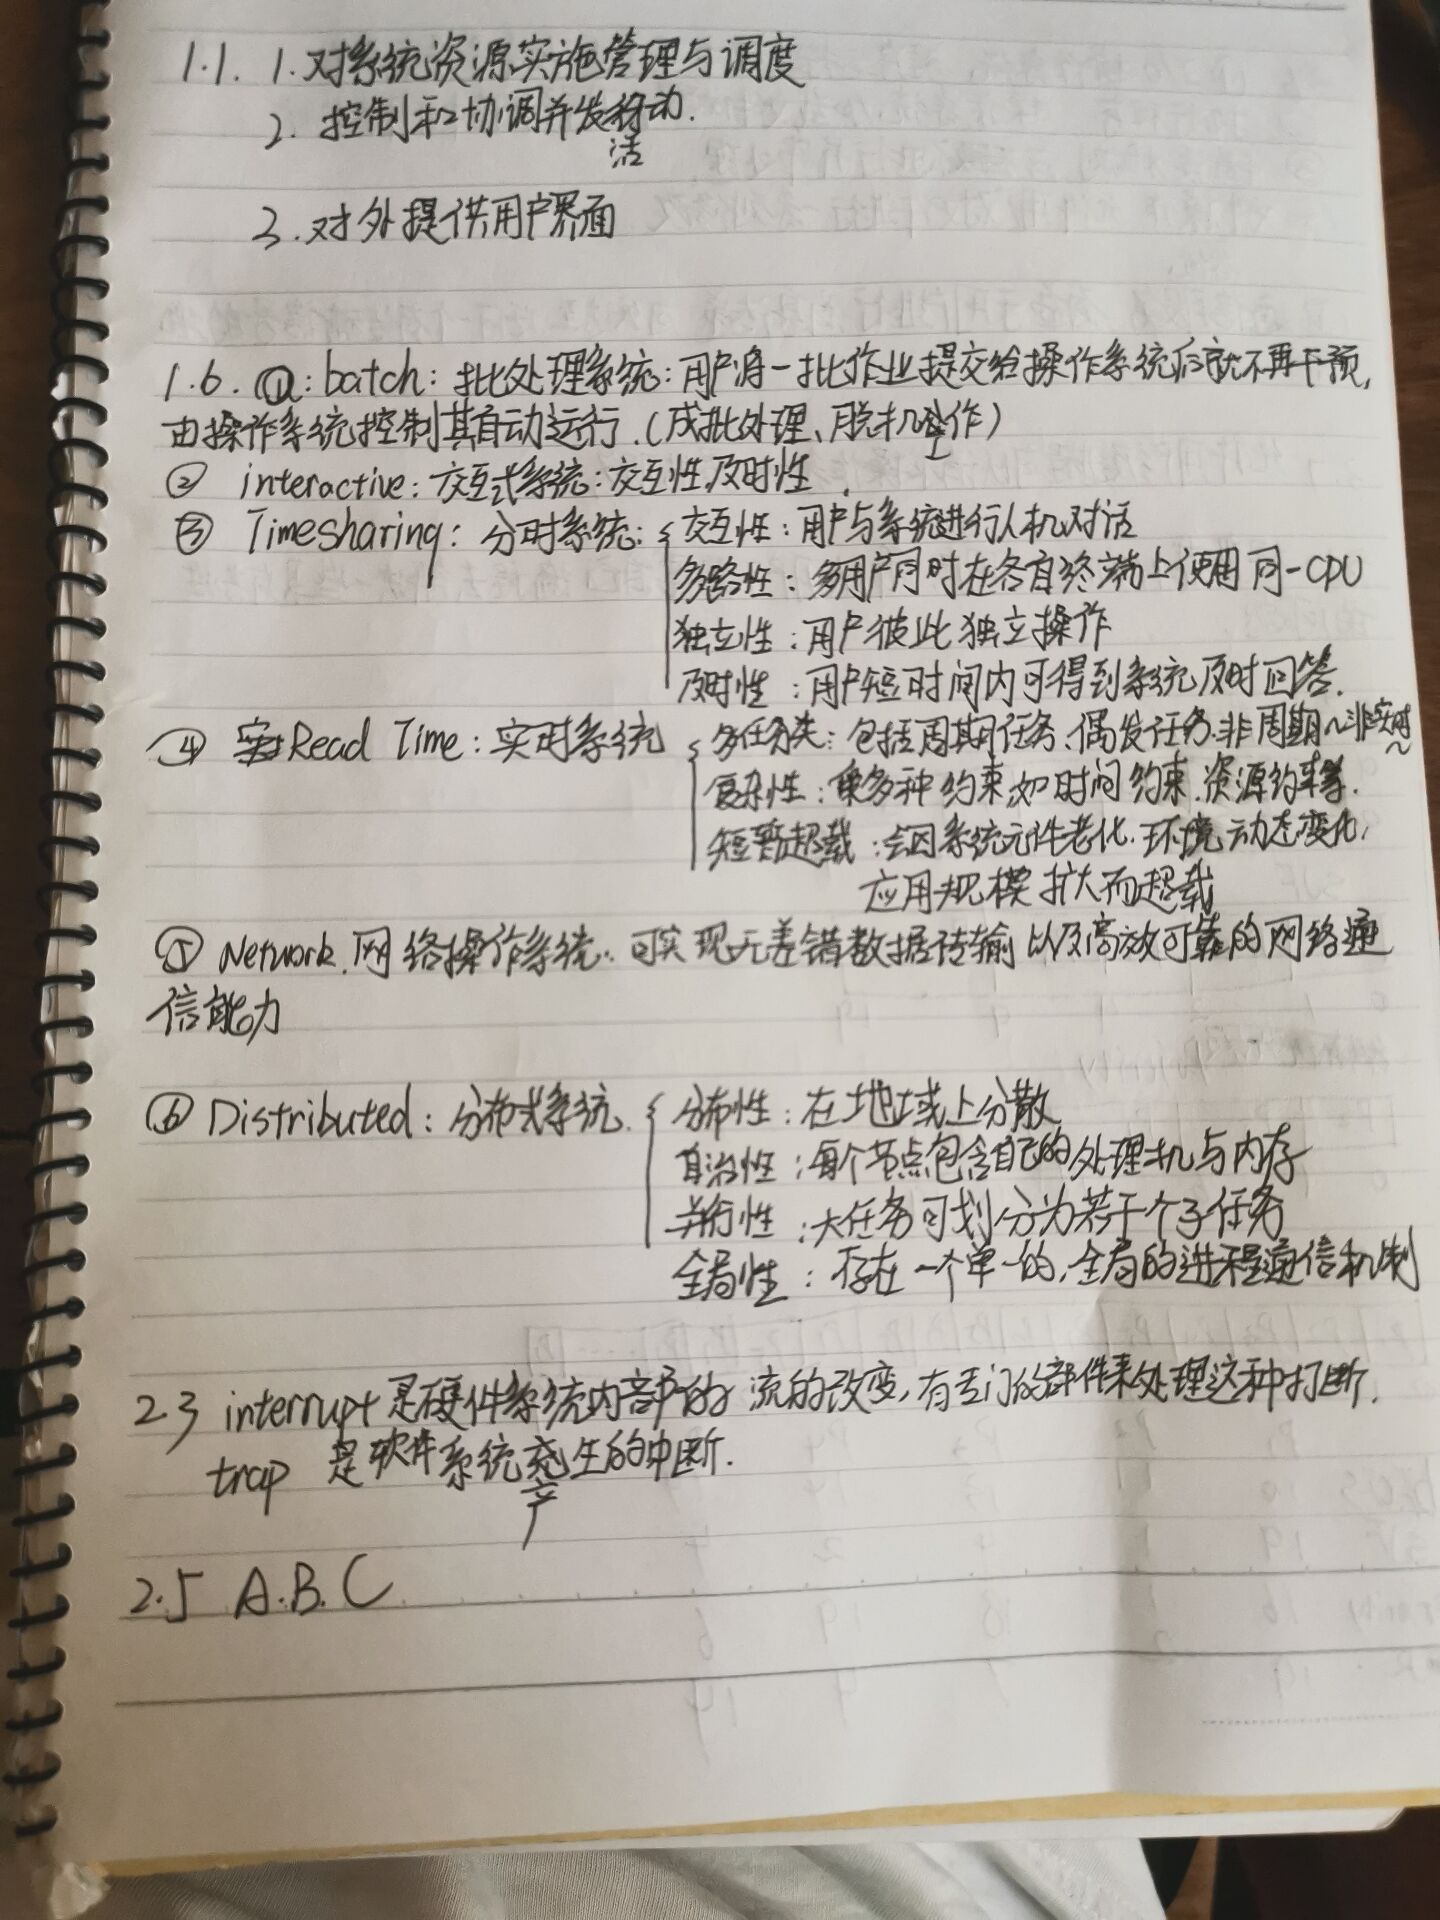 1.1. 1.对系统资源实施管理与调度
2. 控制和协调并发活动.
3.对外提供用户界面
1.6. ①: batch: 批处理系统:用户将一批作业提交给操作系统后就不再干预,
由操作系统控制其自动运行.(成批处理、脱机工作)
② interactive:交互式系统:交互性,及时性.
③ Timesharing: 分时系统: 交互性:用户与系统进行人机对话
多路性:多用户同时在各自终端上使用同一CPU
独立性:用户彼此独立操作
及时性:用户短时间内可得到系统及时回答.
④ Read Time:实时系统 多任务类:包括周期任务、偶发任务.非周期~非实时~
复杂性:多种约束,如时间约束.资源约束等.
短暂超载:会因系统元件老化.环境动态变化,
应用规模扩大而超载
⑤ Network.网络操作系统:可实现无差错数据传输以及高效可靠的网络通
信能力
⑥ Distributed: 分布式系统. 分布性:在地域上分散
自治性:每个节点包含自己的处理机与内存
并行性:大任务可划分为若干个子任务
全局性:存在一个单一的,全局的进程通信机制
2.3 interrupt是硬件系统内部的 流的改变,有专门的部件来处理这种打断.
trap 是软件系统产生的中断.
2.5 A.B.C